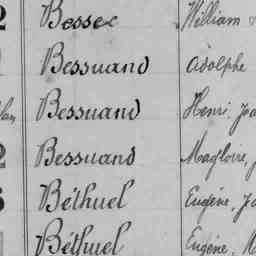 Besses William
Bessuand Adolphe
Bessuand Henri, Jo
Bessuand Magloire, J
Béthuel Eugène, Jo
Béthuel Eugène, M